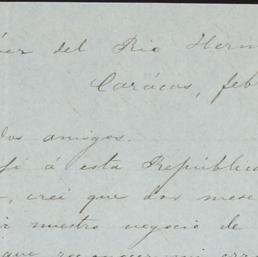 del Rio Herm
Carácas, feb
dos amigos.
á esta República
, crei que dos mese
nuestro negocio de
que